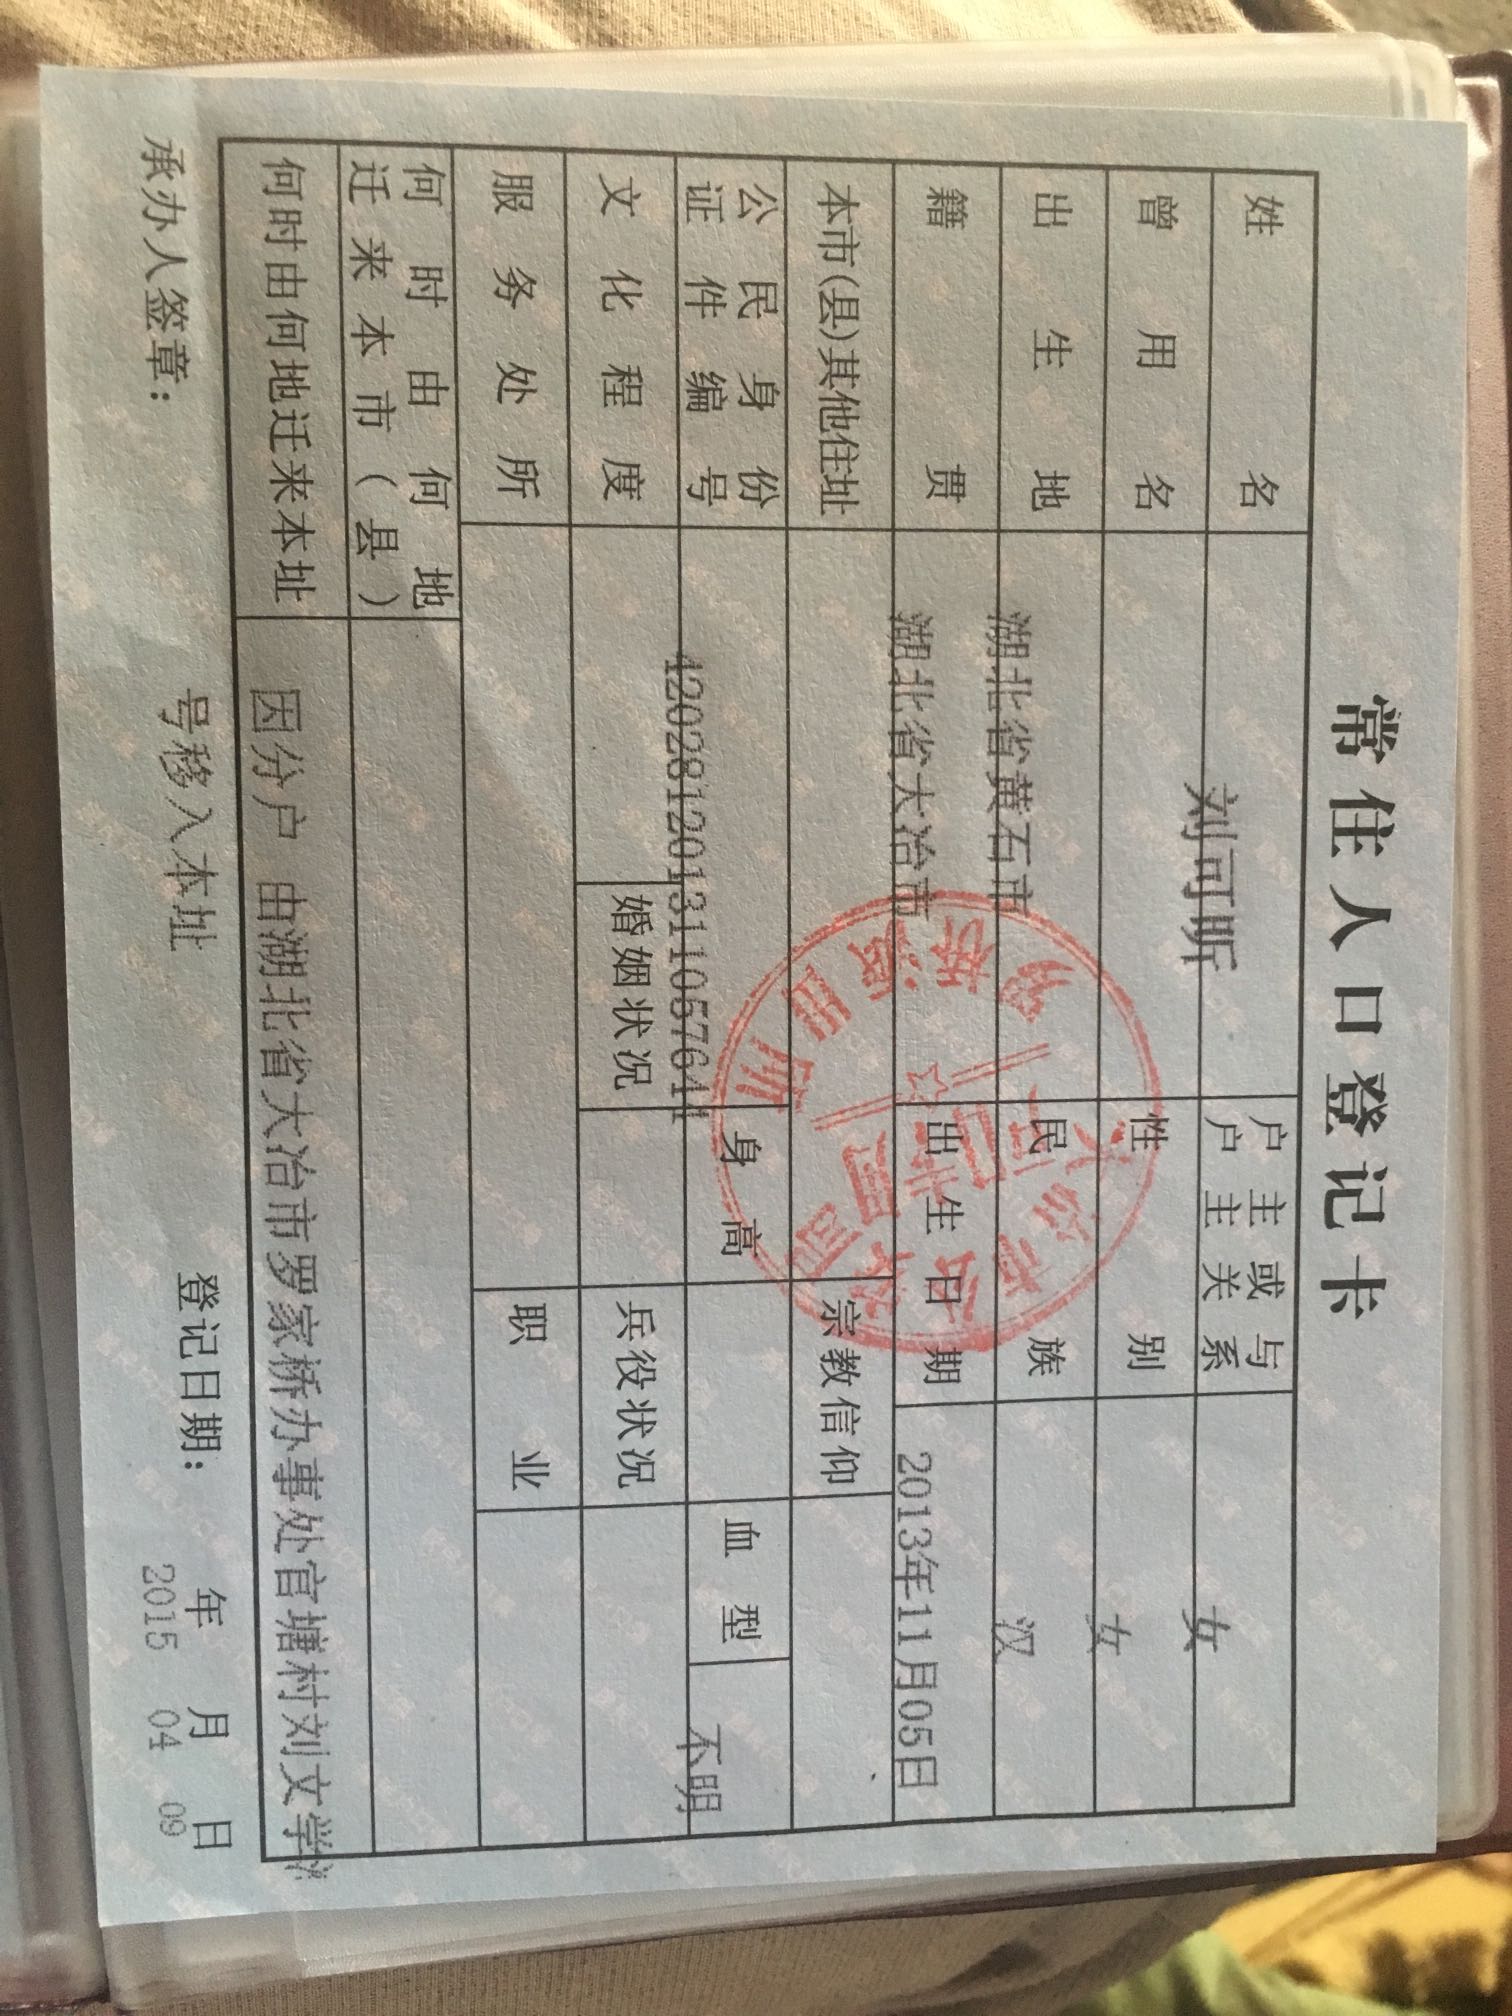 常住人口登记卡
姓名 刘可昕 户主或与户主关系 女
曾用名 性别 女
出生地 湖北省黄石市 民族 汉
籍贯 湖北省大冶市 出生日期 2013年11月05日
本市(县)其他住址 宗教信仰
公民身份证件编号 420281201311057644 身高 血型 不明
文化程度 婚姻状况 兵役状况
服务处所 职业
何时由何地迁来本市(县)
何时由何地迁来本址 因分户 由湖北省大冶市罗家桥办事处官塘村刘文学
号移入本址
承办人签章: 登记日期: 2015年04月09日